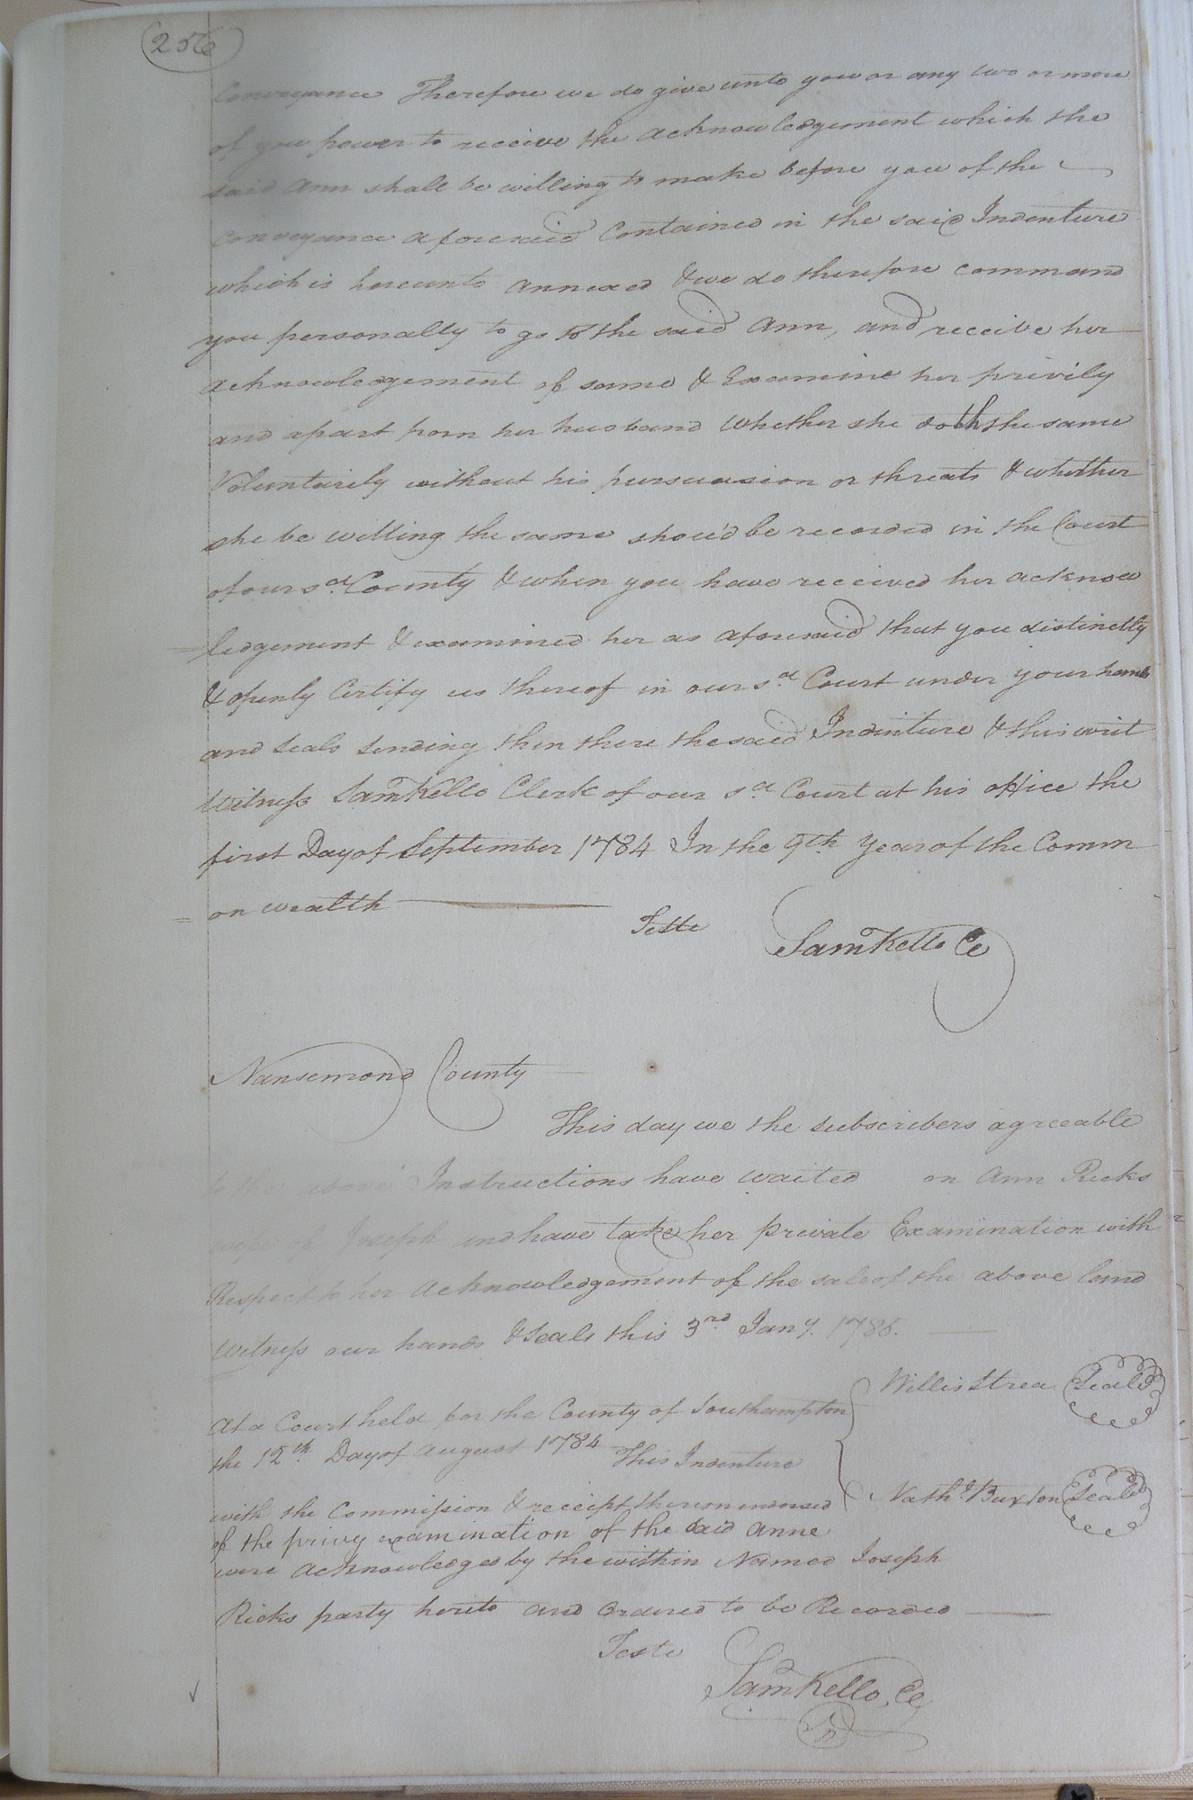 256
Conveyance Therefore we do give unto you or any two or more
of you power to receive the acknowledgement which the
said Ann shall be willing to make before you of the
conveyance aforesaid Contained in the said Indenture
which is hereunto annexed & we do therefore command
you personally to go to the said Ann, and receive her
acknowledgement of same & Examine her privily
and apart from her husband whether she doth the same
Voluntarily without his pursuasion or threats & whether
she be willing the same shou'd be recorded in the Court
of our sd. County & when you have received her acknow
ledgement & examined her as aforesaid that you distinctly
& openly Certify us thereof in our sd. Court under your hands
and seals sending then there the said Indenture & this writ
Witness Saml Kello Clerk of our sd. Court at his office the
first Day of September 1784 In the 9th Year of the Comm
on wealth
Teste
Saml Kello Cc
Nansemond County
This day we the subscribers agreeable
to the above Instructions have waited on Ann Ricks
wife of Joseph and have take her private Examination with
Respect to her acknowledgement of the sale of the above land
Witness our hands & Seals this 3rd Jany. 1785.
Willis Strea Seal
At a Court held for the County of Southampton
the 12th Day of August 1784 This Indenture
Nathl Buxton Seal
with the Commission & receipt thereon endorsed
of the privy examination of the said Anne
were acknowledged by the within Named Joseph
Ricks party hereto and ordered to be Recorded
Teste
Saml Kello, Cc